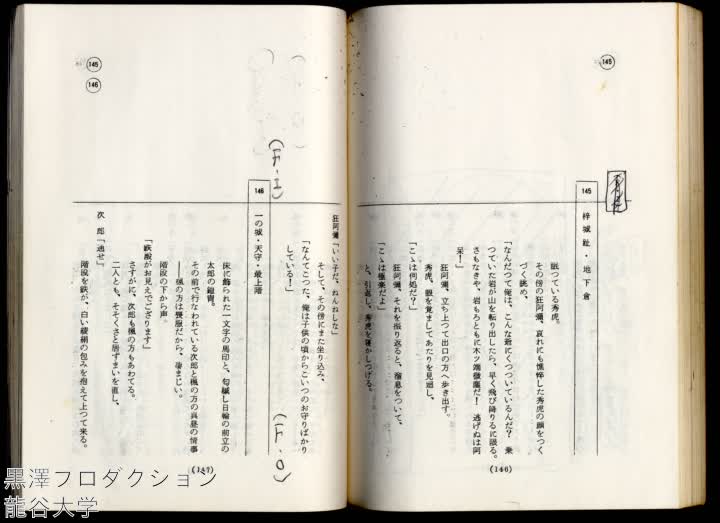 145
145
梓城趾・地下倉
眠っている秀虎。
その傍の狂阿彌、哀れにも憔悴した秀虎の顔をつく
づく眺め、
「なんだつて俺は、こんな爺にくつついているんだ？　乗
つていた岩が山を転り出したら、早く飛び降りるに限る。
さもなきや、岩もろともに木ッ端微塵だ！　逃げぬは阿
呆！」
狂阿彌、立ち上つて出口の方へ歩き出す。
秀虎、眼を覚ましてあたりを見廻し、
「こゝは何処だ？」
狂阿彌、それを振り返ると、溜息をついて、
「こゝは極楽だよ」
と、引返し、秀虎を寝かしつける。
(146)
145
146
狂阿彌「いい子だ、ねんねしな」
そして、その傍にまた坐り込み、
「なんてこつた、俺は子供の頃からこいつのお守りばかり
している！」
(F・O)
(F・I)
146
一の城・天守・最上階
床に飾られた一文字の馬印と、匂縅し日輪の前立の
太郎の鎧冑。
その前で行なわれている次郎と楓の方の真昼の情事
——楓の方は喪服だから、凄まじい。
階段の下から声。
「鉄殿がお見えでござります」
さすがに、次郎も楓の方もあわてる。
二人とも、そそくさと居ずまいを直し、
次郎「通せ」
階段を鉄が、白い綾絹の包みを抱えて上つて来る。
(147)
黒澤プロダクション
龍谷大学